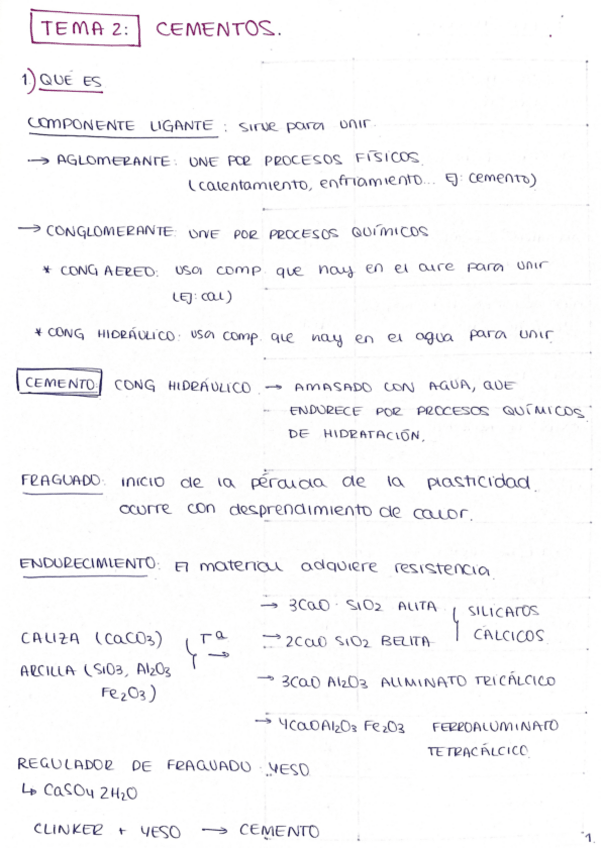 TEMA 2: CEMENTOS.
1) QUÉ ES
COMPONENTE LIGANTE: sirve para unir.
→ AGLOMERANTE: UNE POR PROCESOS FÍSICOS.
(calentamiento, enfriamiento... Ej: cemento)
→ CONGLOMERANTE: UNE POR PROCESOS QUÍMICOS
* CONG AEREO: usa comp. que hay en el aire para unir
(Ej: cal)
* CONG HIDRÁULICO: usa comp. que hay en el agua para unir.
CEMENTO: CONG HIDRÁULICO → AMASADO CON AGUA, QUE
ENDURECE POR PROCESOS QUÍMICOS
DE HIDRATACIÓN.
FRAGUADO: inicio de la pérdida de la plasticidad.
ocurre con desprendimiento de calor.
ENDURECIMIENTO: El material adquiere resistencia.
→ 3CaO · SiO2 ALITA
→ 2CaO SiO2 BELITA
SILICATOS
CÁLCICOS
CALIZA (CaCO3)
ARCILLA (SiO3, Al2O3
Fe2O3)
Tª
→
→ 3CaO Al2O3 ALIMINATO TRICÁLCICO
→ 4CaOAl2O3 Fe2O3 FERROALUMINATO
TETRACÁLCICO
REGULADOR DE FRAGUADO: YESO
↳ CaSO4 2H2O
CLINKER + YESO → CEMENTO
1.